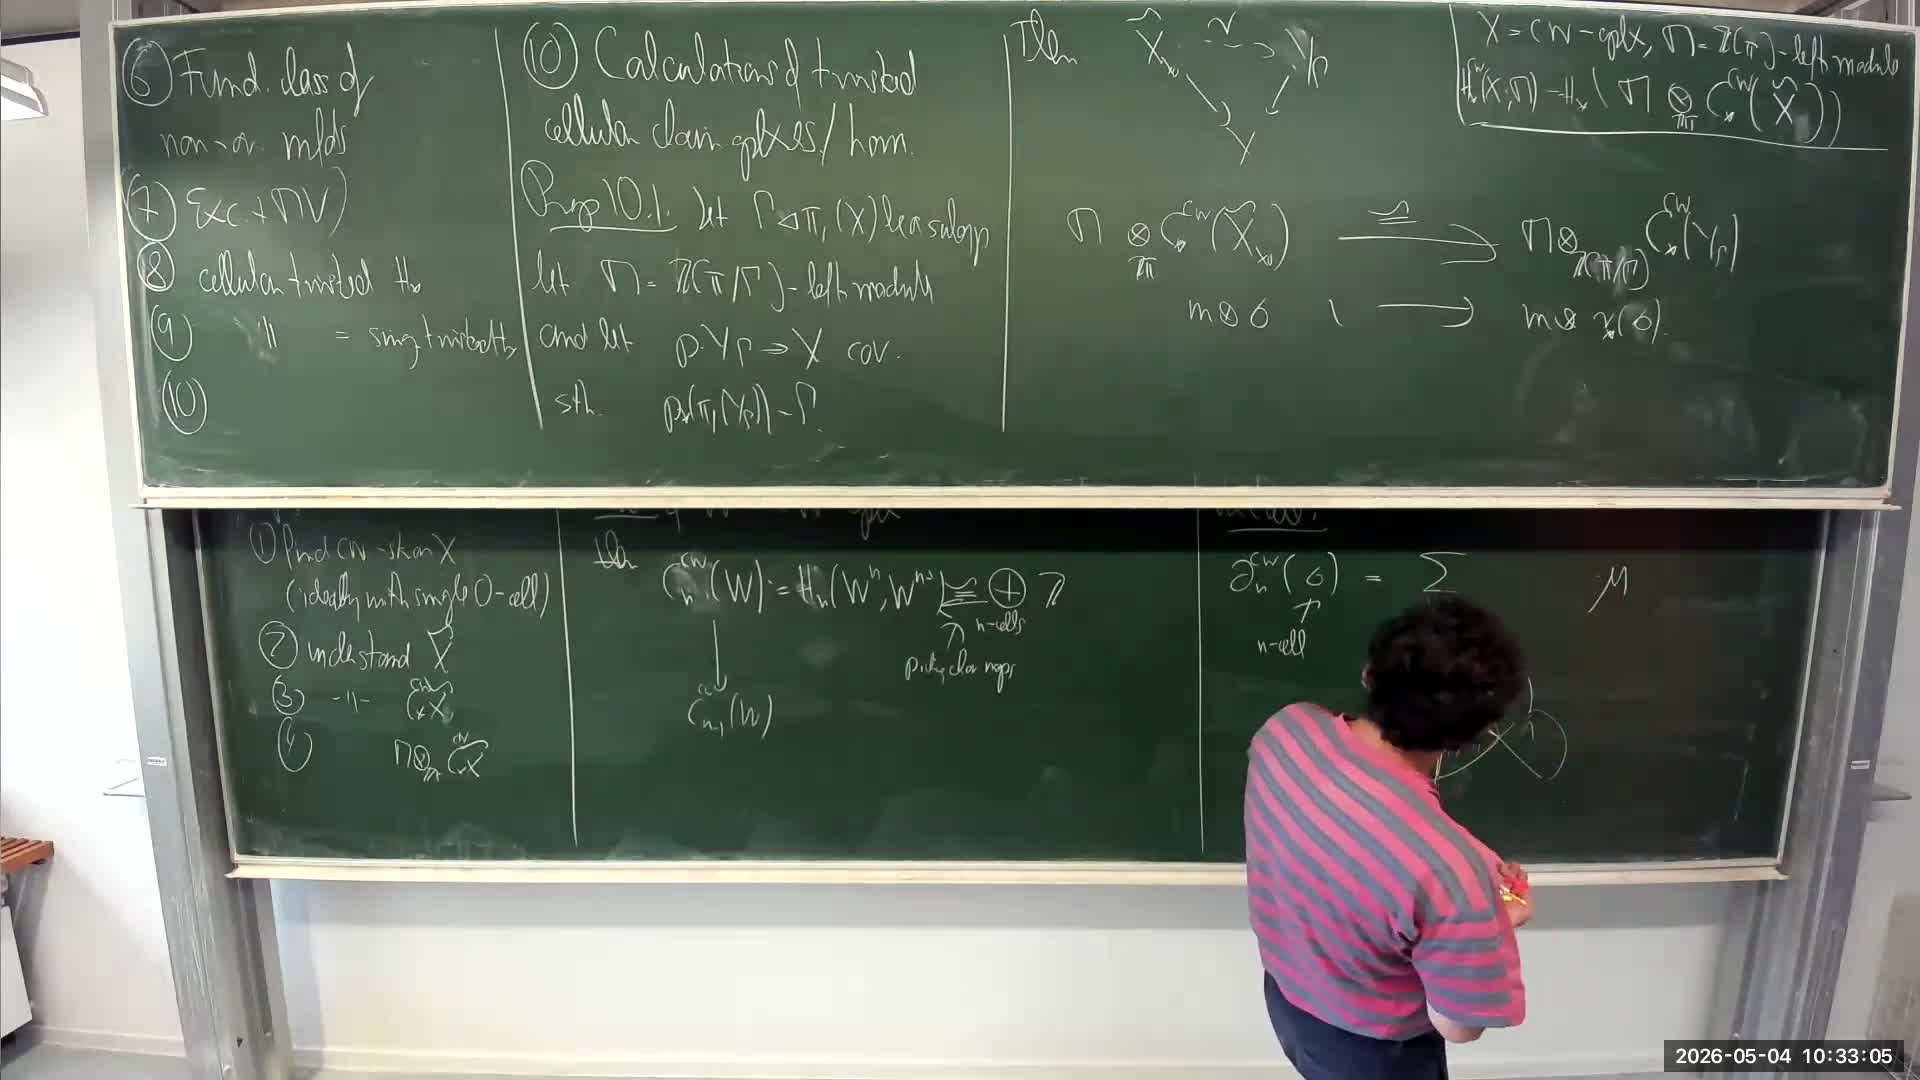 ⑥ Fund. class of
non-or. mfds
⑦ Exc. + MV
⑧ cellular twisted H_*
⑨ " = sing twisted H_*
⑩
⑩ Calculations of twisted
cellular chain cplxes / hom.
Prop 10.1. let Γ ◁ π₁(X) be a subgp
let M = ℤ[π/Γ]-left module
and let p: Y_Γ → X cov.
s.th. p_*(π₁(Y_Γ)) = Γ.
Then X̃_{x₀} → Y_Γ
Y
M ⊗_{ℤπ} C_*^{CW}(X̃_{x₀}) ≅→ M ⊗_{ℤ[π/Γ]} C_*^{CW}(Y_Γ)
m ⊗ σ ↦ m ⊗ χ(σ).
X = CW-cplx, M = ℤ[π]-left module
H_*^{CW}(X;M) = H_*(M ⊗_{ℤπ} C_*^{CW}(X̃))
① find CW-str on X
(ideally with single 0-cell)
② understand X̃
③ -"- C_*^{CW}X̃
④ M ⊗_{ℤπ} C_*^{CW}X̃
then C_n^{CW}(W) := H_n(Wⁿ, W^{n-1}) ≅ ⊕_{n-cells} ℤ
↑
pick char maps
↓
C_{n-1}^{CW}(W)
∂_n^{CW}(σ) = Σ μ
↑
n-cell
2026-05-04 10:33:05